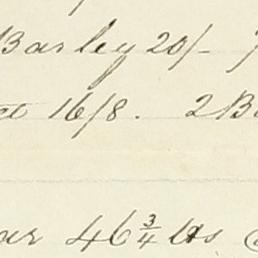 Barley 20/-
16/8. 2
46 3/4 lbs